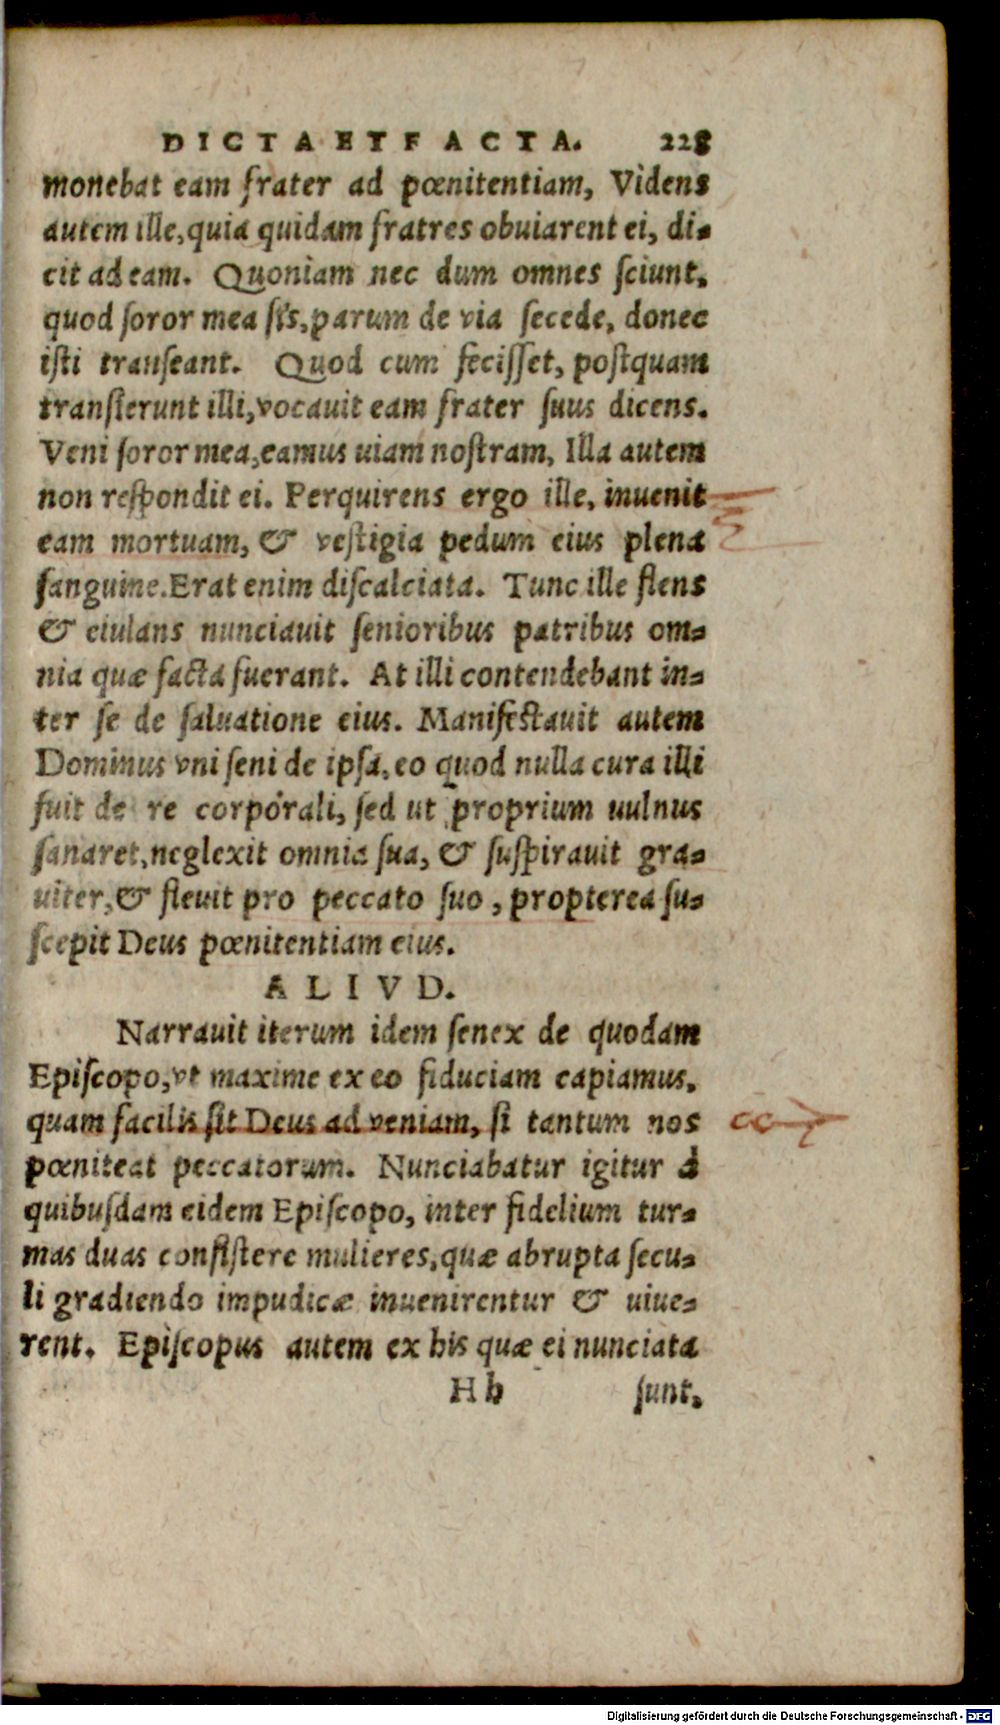 DICTA ET FACTA. 228
monebat eam frater ad pœnitentiam, Videns
autem ille, quia quidam fratres obuiarent ei, di-
cit ad eam. Quoniam nec dum omnes sciunt,
quod soror mea sis, parum de via secede, donec
isti transeant. Quod cum fecisset, postquam
transierunt illi, vocauit eam frater suus dicens.
Veni soror mea, eamus uiam nostram, Illa autem
non respondit ei. Perquirens ergo ille, inuenit
eam mortuam, & vestigia pedum eius plena
sanguine. Erat enim discalciata. Tunc ille flens
& eiulans nunciauit senioribus patribus om-
nia quæ facta fuerant. At illi contendebant in-
ter se de saluatione eius. Manifestauit autem
Dominus vni seni de ipsa, eo quod nulla cura illi
fuit de re corporali, sed ut proprium uulnus
sanaret, neglexit omnia sua, & suspirauit gra-
uiter, & fleuit pro peccato suo, propterea su-
scepit Deus pœnitentiam eius.
ALIVD.
Narrauit iterum idem senex de quodam
Episcopo, vt maxime ex eo fiduciam capiamus,
quam facilis sit Deus ad veniam, si tantum nos
pœniteat peccatorum. Nunciabatur igitur à
quibusdam eidem Episcopo, inter fidelium tur-
mas duas consistere mulieres, quæ abrupta secu-
li gradiendo impudicæ inuenirentur & uiue-
rent. Episcopus autem ex his quæ ei nunciata
Hh sunt,
Digitalisierung gefördert durch die Deutsche Forschungsgemeinschaft - DFG